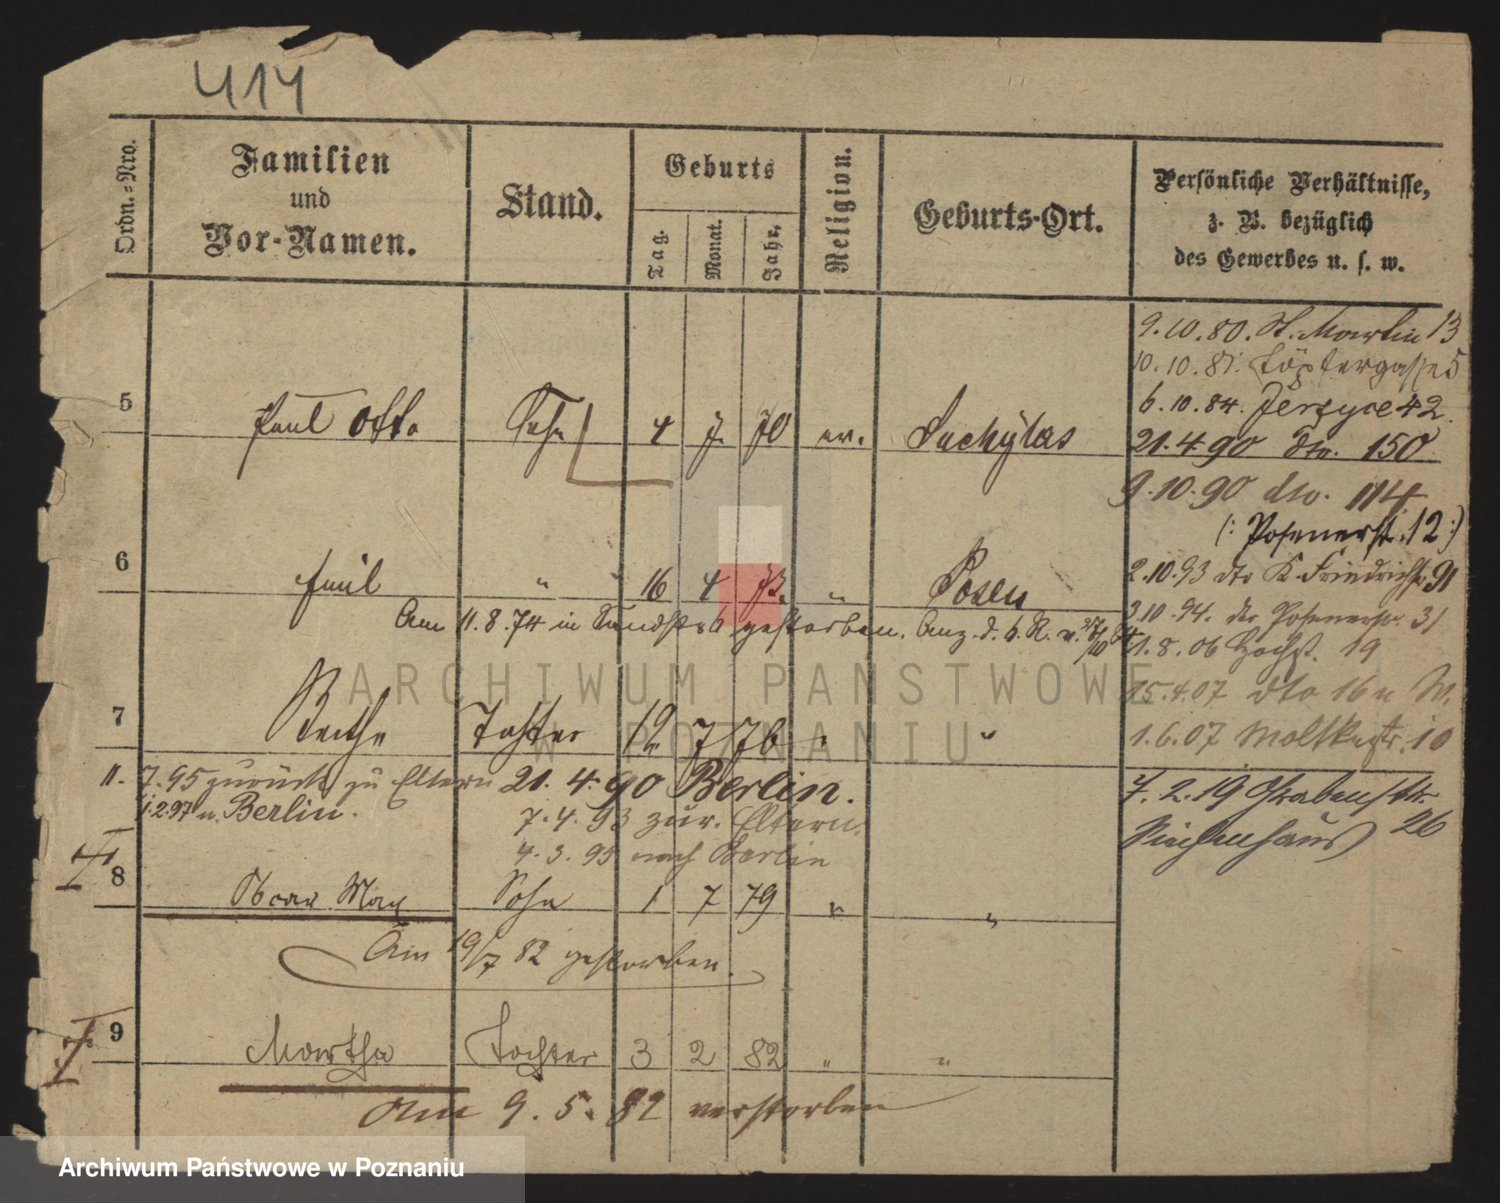 414
Ordn.-Nro.
Familien
und
Vor-Namen.
Stand.
Geburts
Tag.
Monat.
Jahr.
Religion.
Geburts-Ort.
Persönliche Verhältnisse,
z. B. bezüglich
des Gewerbes u. s. w.
9.10.80. St. Martin 13
10.10.81. Töpfergasse 5
6.10.84. Jerzyce 42
5 Paul Otto Sohn 4 7. 70 ev.
21.4.90 dto. 150
9.10.90 dto. 114
(: Posenerst. 12 :)
6 Emil " " 16 4 73. " Posen
2.10.93 dto K. Friedrichstr. 91
Am 11.8.74 in gestorben. Anz. d. b. R. v.
3.10.94. dto Posenerstr. 31
1.8.06 19
15.4.07 dto 16 u
7 Tochter 12 7 76 " "
1.6.07 Moltkestr. 10
11. 7.95 zurück zu Eltern 21.4.90 Berlin.
7.2.19 Grabenstr. 26
Siechenhaus
1.2.97 n. Berlin.
7.4.93 zur. Eltern.
4.3.95 nach Berlin
8 Oscar Max Sohn 1 7 79 " "
Am 19/7 82 gestorben.
9 Martha Tochter 3 2 82 " "
Am 9.5.82 verstorben
ARCHIWUM PAŃSTWOWE
W POZNANIU
Archiwum Państwowe w Poznaniu